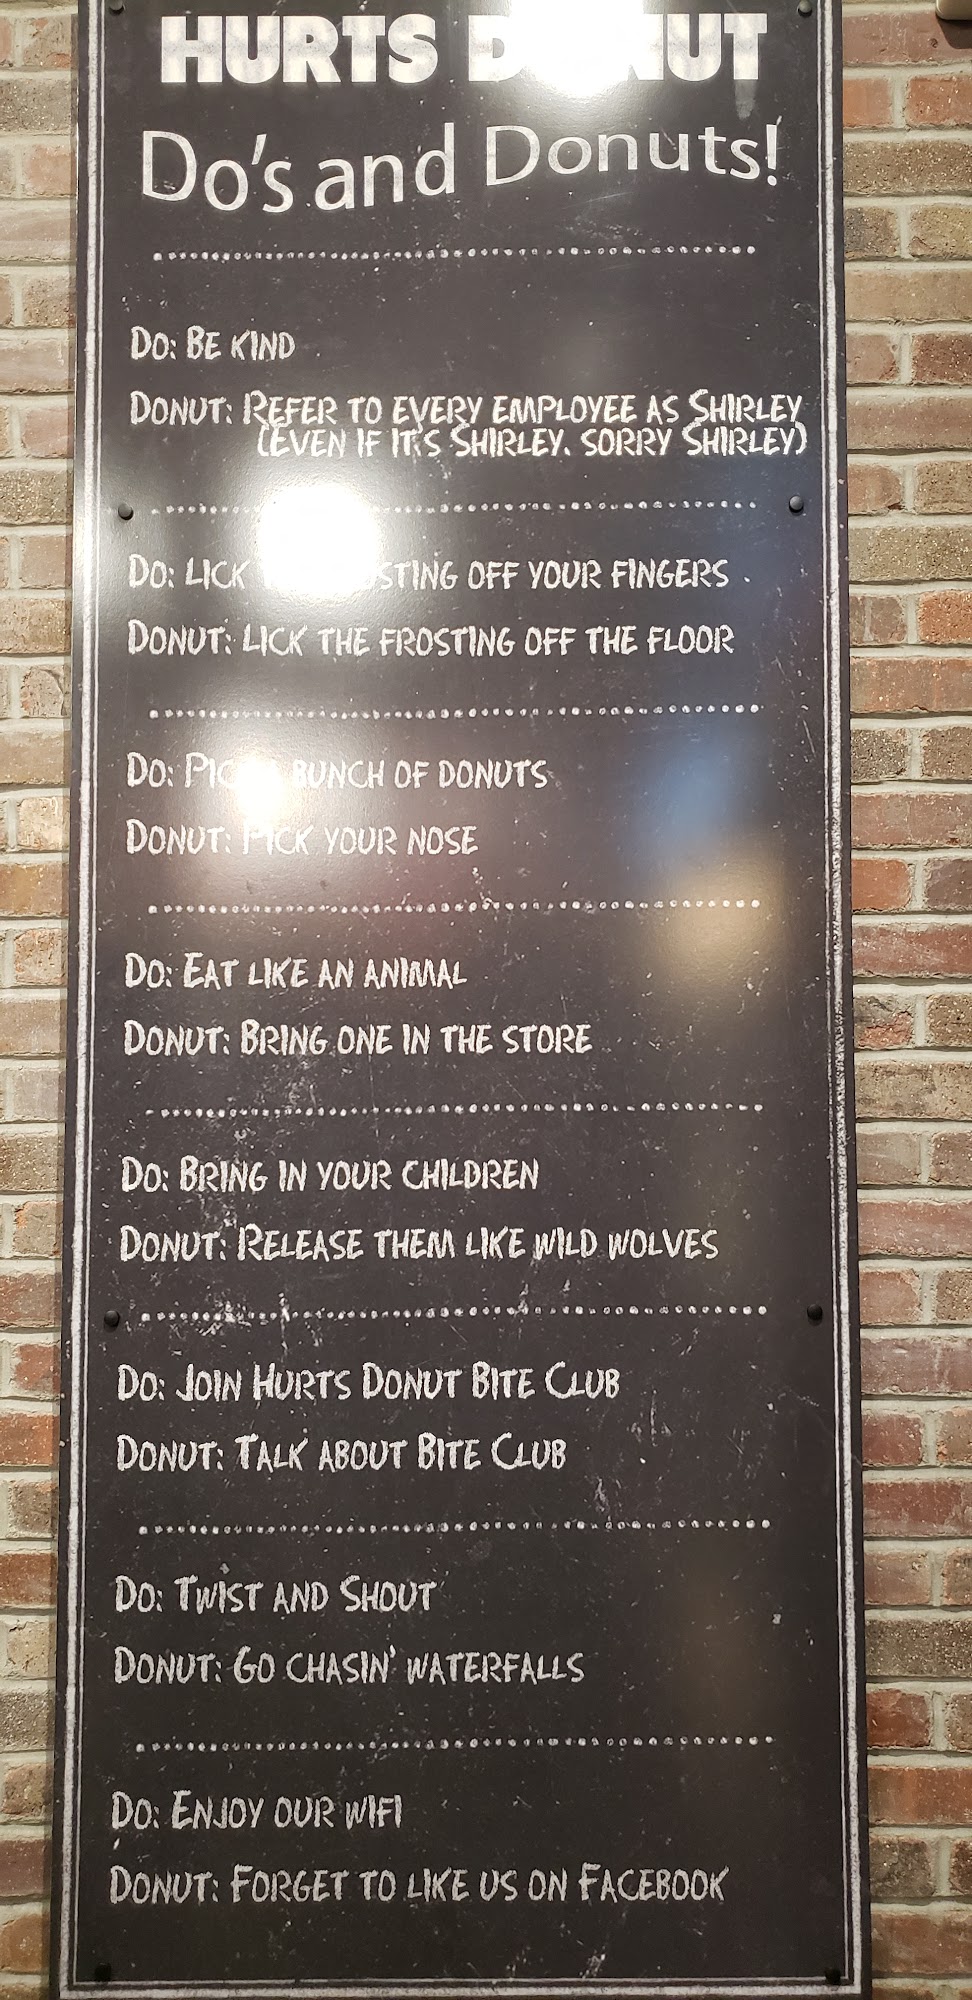 HURTS
Do's and Donuts!
Do: Be kind
Donut: Refer to every employee as Shirley
(Even if it's Shirley. Sorry Shirley)
Do: Lick frosting off your fingers
Donut: Lick the frosting off the floor
Do: Pick a bunch of donuts
Donut: Pick your nose
Do: Eat like an animal
Donut: Bring one in the store
Do: Bring in your children
Donut: Release them like wild wolves
Do: Join Hurts Donut Bite Club
Donut: Talk about Bite Club
Do: Twist and Shout
Donut: Go chasin' waterfalls
Do: Enjoy our wifi
Donut: Forget to like us on Facebook